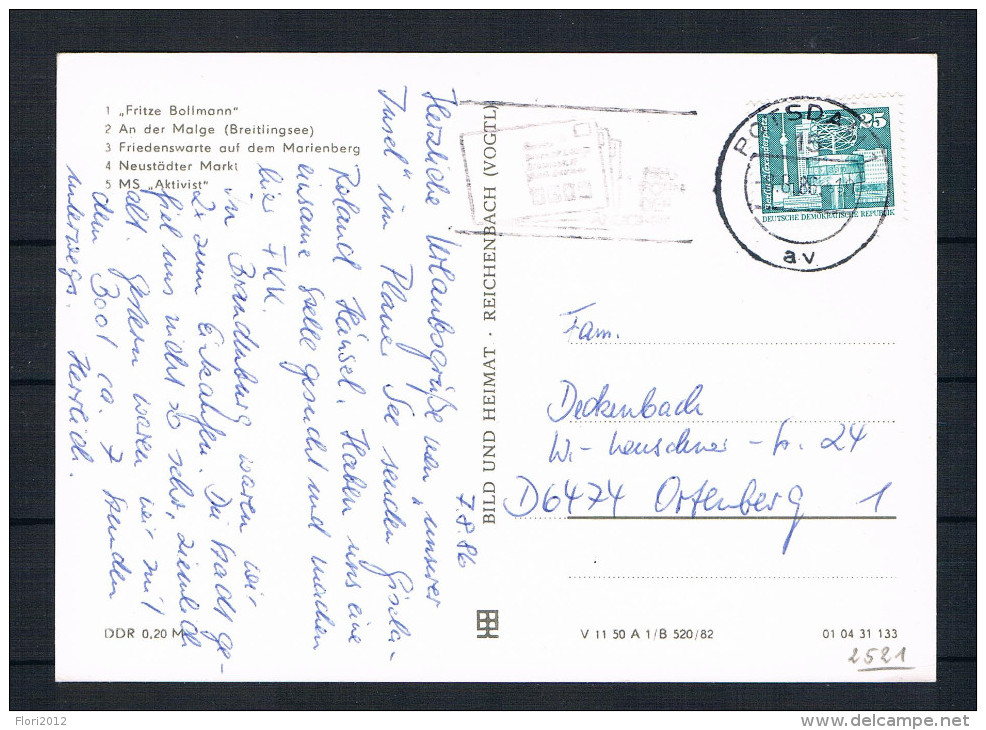 1 „Fritze Bollmann"
2 An der Malge (Breitlingsee)
3 Friedenswarte auf dem Marienberg
4 Neustädter Markt
5 MS „Aktivist"
7.8.86
Herzliche Urlaubsgrüße von „unserer
Insel" im Plauer See senden Gisela
Roland Hänsel. Haben uns eine
einsame Stelle gesucht und machen
hier FKK.
In Brandenburg waren wir
2x zum Einkaufen. Die Stadt ge-
fiel uns nicht so sehr, ziemlich
alt. Gestern waren wir mit
dem Boot ca. 7 Stunden
unterwegs. Herrlich.
DDR 0,20 M
BILD UND HEIMAT · REICHENBACH (VOGTL)
POTSDAM
15
av
25
DEUTSCHE DEMOKRATISCHE REPUBLIK
Fam.
Deckenbach
W.-Leuschner-Str. 24
D6474 Ortenberg 1
V 11 50 A 1/B 520/82
01 04 31 133
2521
Flori2012
delcampe.net